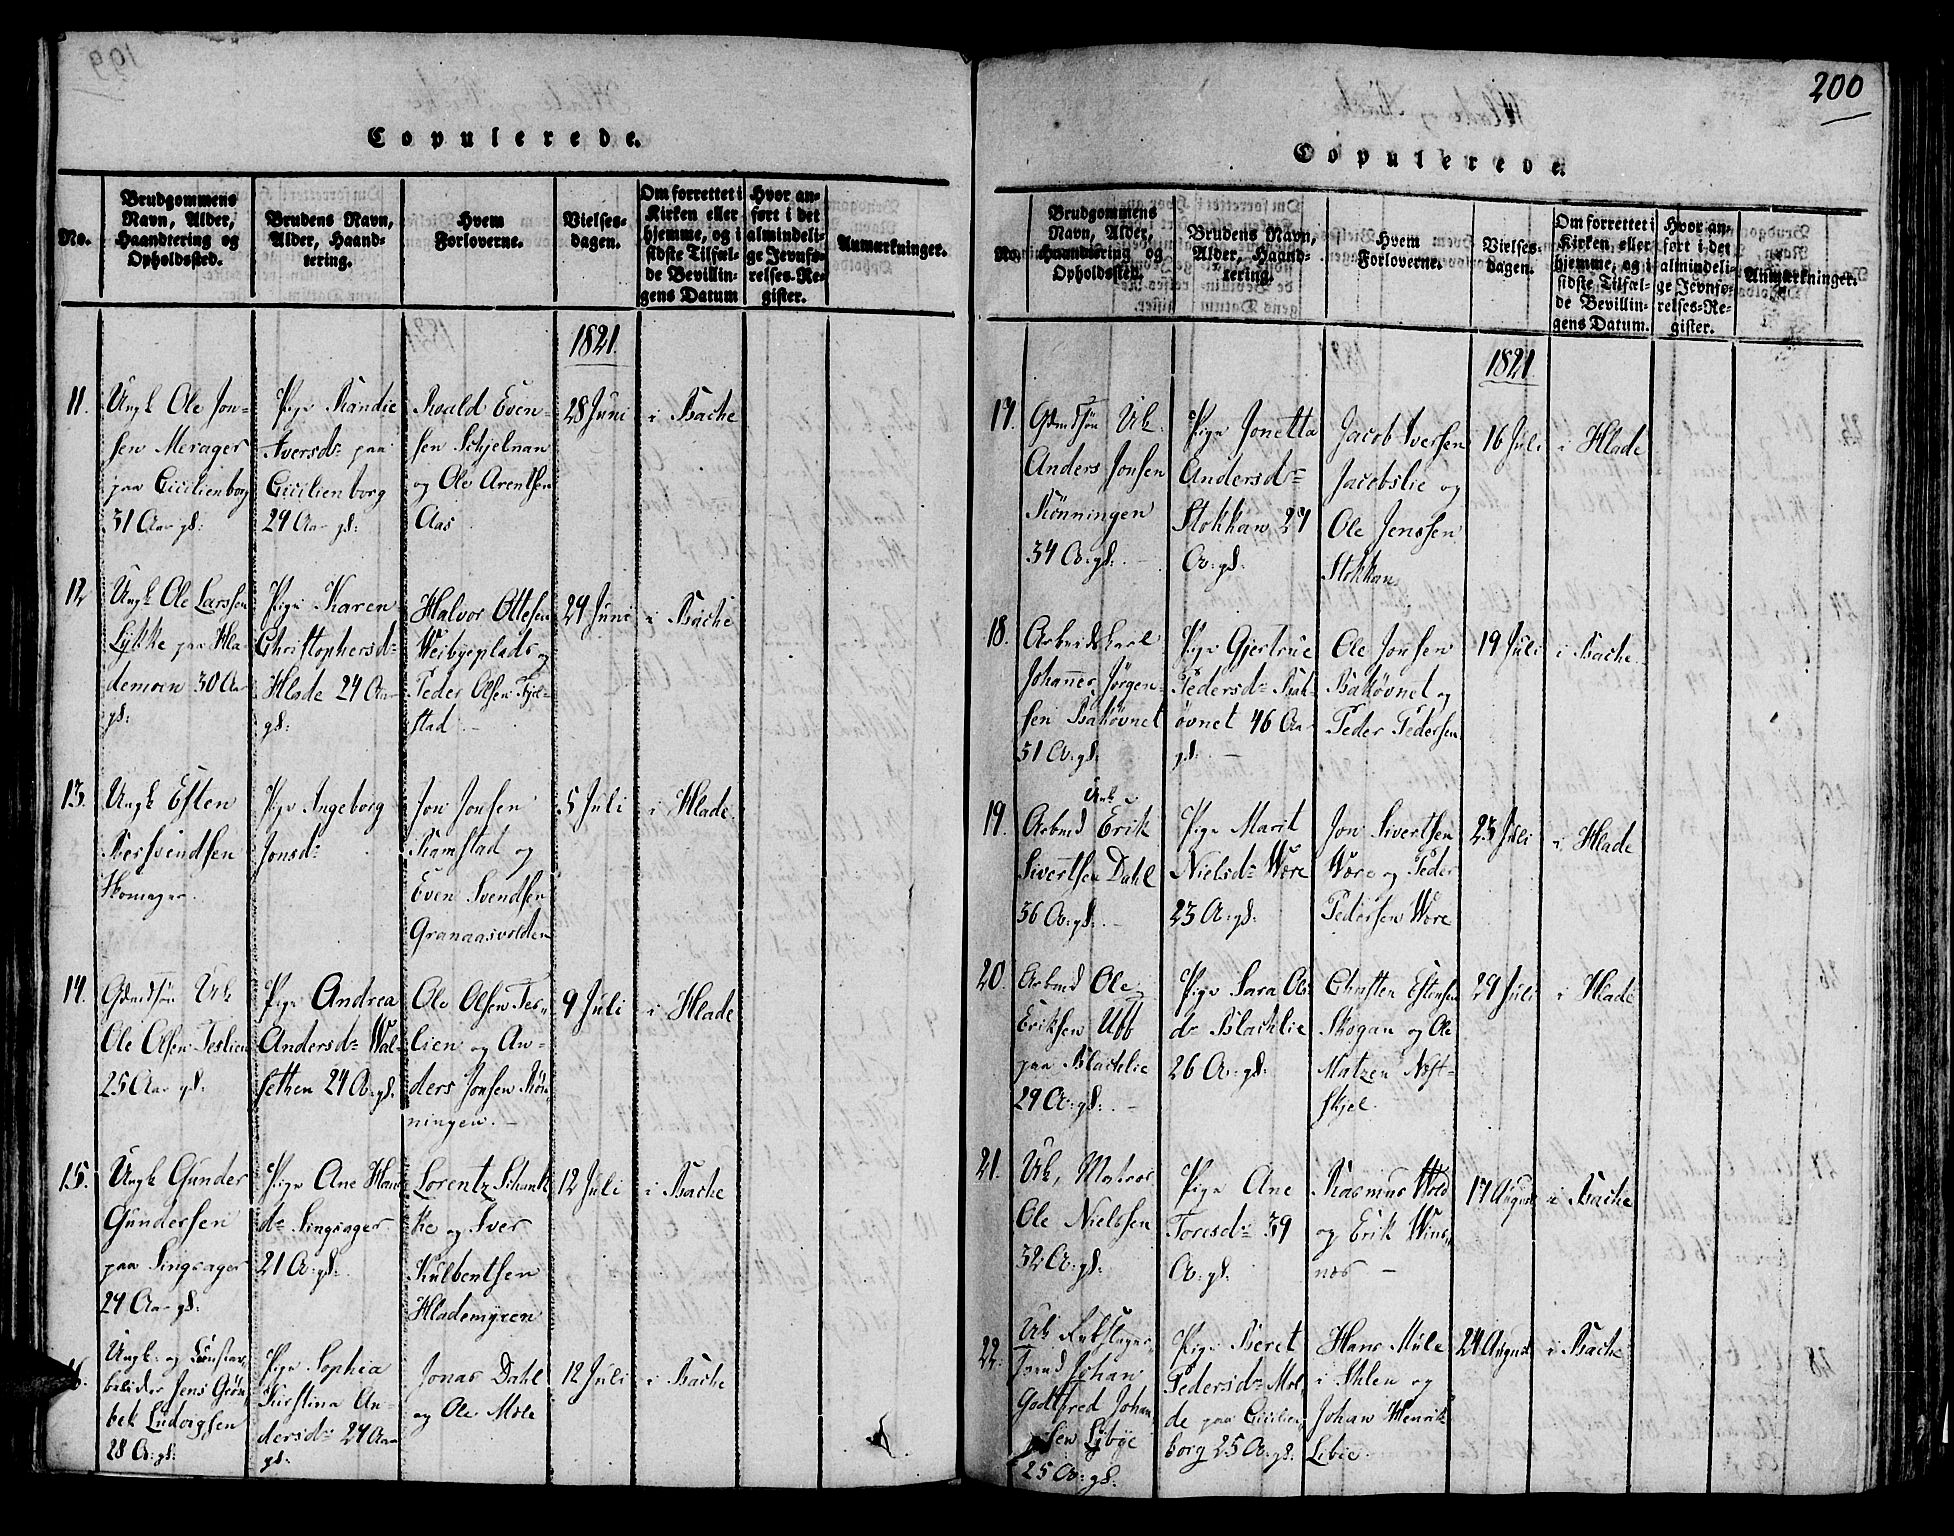 200
Copulerede.
No.
Brudgommens Navn, Alder, Haandtering og Opholdssted.
Brudens Navn, Alder, Haandtering.
Hvem Forloverne.
Vielses-dagen.
Om forrettet i Kirken eller hjemme, og i sidste Tilfælde Bevillingens Datum
Hvor anført i det almindelige Jevnførelses-Register.
Anmærkninger.
1821.
11.
Ungk Ole Jon-
sen Merager
paa Cicilienborg
31 Aar gl:
Pige Randie
Iversd: paa
Cicilienborg
29 Aar gl:
Roald Even-
sen Schjelnan
og Ole Arentsen
Aas
28 Juni
i Bache
12
Ungk Ole Larssen
Lykke paa Hla-
demoen 30 Aar
gl:
Pige Karen
Christophersd:
Hlade 24 Aar
gl:
Halvor Ottesen
Weibyeplads og
Peder Olsen
stad
29 Juni
i Bache
13.
Ungk Esten
Bersvendsen
Pige Ingeborg
Jonsd:
Jon Jonsen
Ramstad og
Even Svendsen
Granaasvolden
5 Juli
i Hlade
14.
Gdmdsøn Uk
Ole Olsen Teslien
25 Aar gl:
Pige Andrea
Andersd: Wal-
sethen 24 A: gl:
Ole Olsen Tes-
lien og An-
ders Jonsen Røn-
ningen.
9 Juli
i Hlade
15.
Ungk Gunder
Gundersen
paa Singsager
24 Aar gl:
Pige Ane Han
d: Singsager
21 A: gl:
Lorentz Schank
ke og Iver
Kulbentsen
Hlademyren
12 Juli
i Bache
16.
Ungk: og
Jens Grøn
bek Ludvigsen
28 A: gl:
Pige Sophia
Kirstina An-
dersd: 24 Aar
gl:
Jonas Dahl
og Ole Moe
12 Juli
i Bache
Copulerede.
No.
Brudgommens Navn, Alder, Haandtering og Opholdssted.
Brudens Navn, Alder, Haandtering.
Hvem Forloverne.
Vielses-dagen.
Om forrettet i Kirken, eller hjemme, og i sidste Tilfælde Bevillingens Datum.
Hvor anført i det almindelige Jevnførelses-Register.
Anmærkninger.
1821
17.
Gdmdsøn Uk.
Anders Jonsen
Rønningen
34 A: gl:
Pige Jonetta
Andersd:
Stokkan 27
A: gl:
Jacob Iversen
Jacobslie og
Ole Jenssen
Stokkan
16 Juli
i Hlade
18.
Arbeidskarl
Johannes Jørgen-
sen Bakøvnet
51 A: gl:
Pige Gjertrue
Pedersd: Bak-
øvnet 46 Aar
gl:
Ole Jonsen
Bakøvnet og
Peder Pedersen
19 Juli
i Bache
19.
Ungk
Arbmd Erik
Sivertsen Dahl
36 A: gl:
Pige Marit
Nielsd: Wøre
23 A: gl:
Jon Sivertsen
Wøre og Peder
Pedersen Wøre
23 Juli
i Hlade
20.
Arbmd Ole
Eriksen Uk
paa Blachlie
29 A: gl:
Pige Sara
d: Blachlie
26 A: gl:
Christen Estensen
Skogan og Ole
Matzen
skjel
29 Juli
i Hlade
21.
Uk, Matros
Ole Nielssen
32 A: gl:
Pige Ane
Toresd: 39
A: gl:
Rasmus Wold
og Erik Wins-
nes
17 August
i Bache
22.
Uk
Johan
Godtfred Johan
sen Lybye
25 A: gl:
Pige Beret
Pedersd: Mol
de paa Cicilien
borg 25 A: gl:
Hans Mule
i Ihlen og
Johan Henrik
Libie.
24 August
i Bache